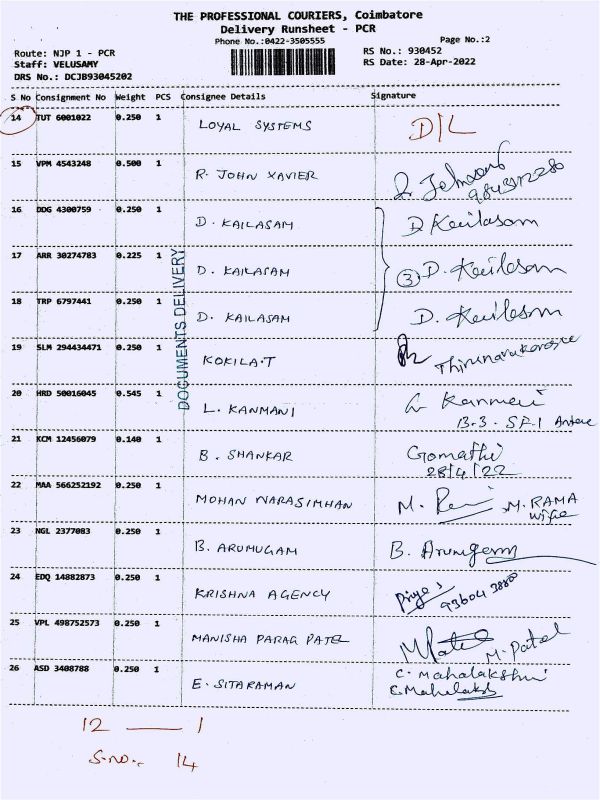 THE PROFESSIONAL COURIERS, Coimbatore
Delivery Runsheet - PCR
Phone No.:0422-3505555
Page No.:2
Route: NJP 1 - PCR
Staff: VELUSAMY
DRS No.: DCJB93045202
RS No.: 930452
RS Date: 28-Apr-2022
S No Consignment No Weight PCS Consignee Details Signature
14 TUT 6001022 0.250 1 LOYAL SYSTEMS D/L
15 VPM 4543248 0.500 1 R. JOHN XAVIER
16 DDG 4300759 0.250 1 D. KAILASAM D. Kailasam
17 ARR 30274783 0.225 1 D. KAILASAM 3 D. Kailasam
18 TRP 6797441 0.250 1 D. KAILASAM D. Kailasam
DOCUMENTS DELIVERY
19 SLM 294434471 0.250 1 KOKILA.T
20 HRD 50016045 0.545 1 L. KANMANI
B-3. SF-1
21 KCM 12456079 0.140 1 B. SHANKAR Gomathi
28/4/22
22 MAA 566252192 0.250 1 MOHAN NARASIMHAN M. RAMA
wife
23 NGL 2377083 0.250 1 B. ARUMUGAM B. Arumugam
24 EDQ 14882873 0.250 1 KRISHNA AGENCY
25 VPL 498752573 0.250 1 MANISHA PARAG PATEL M. Patel
26 ASD 3408788 0.250 1 E. SITARAMAN C. Mahalakshmi
C. Mahalaksh
12 — 1
S.no. 14